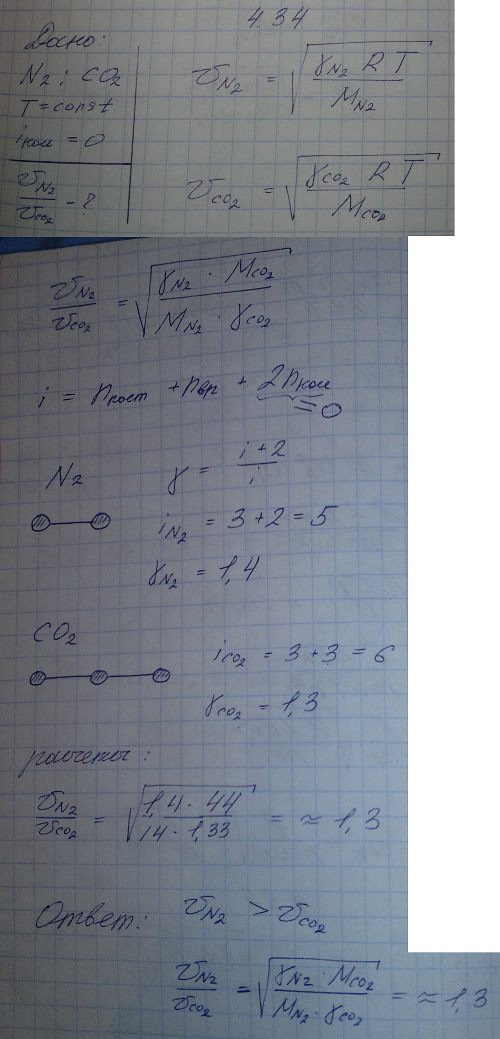 4.34
Дано:
N₂ ; CO₂
T = const
iкол = 0
v_N₂ / v_CO₂ - ?
v_N₂ = √(γ_N₂ R T / M_N₂)
v_CO₂ = √(γ_CO₂ R T / M_CO₂)
v_N₂ / v_CO₂ = √(γ_N₂ · M_CO₂ / M_N₂ · γ_CO₂)
i = nпост + nвр + 2nкол
= 0
N₂
γ = i + 2 / i
i_N₂ = 3 + 2 = 5
γ_N₂ = 1,4
CO₂
i_CO₂ = 3 + 3 = 6
γ_CO₂ = 1,3
расчеты:
v_N₂ / v_CO₂ = √(1,4 · 44 / 14 · 1,33) = ≈ 1,3
Ответ: v_N₂ > v_CO₂
v_N₂ / v_CO₂ = √(γ_N₂ · M_CO₂ / M_N₂ · γ_CO₂) = ≈ 1,3